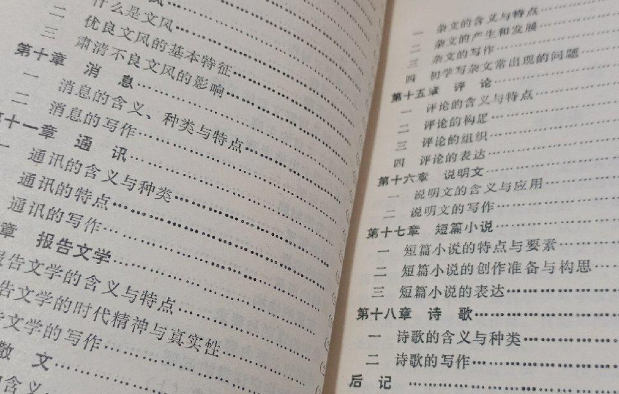 什么是文风
二 优良文风的基本特征
三 肃清不良文风的影响
第十章 消 息
一 消息的含义、种类与特点
二 消息的写作
十一章 通 讯
一 通讯的含义与种类
通讯的特点
通讯的写作
章 报告文学
报告文学的含义与特点
告文学的时代精神与真实性
文学的写作
散 文
的含义
一 杂文的含义与特点
二 杂文的产生和发展
三 杂文的写作
四 初学写杂文常出现的问题
第十五章 评 论
一 评论的含义与特点
二 评论的构思
三 评论的组织
四 评论的表达
第十六章 说明文
一 说明文的含义与应用
二 说明文的写作
第十七章 短篇小说
一 短篇小说的特点与要素
二 短篇小说的创作准备与构思
三 短篇小说的表达
第十八章 诗 歌
一 诗歌的含义与种类
二 诗歌的写作
后 记